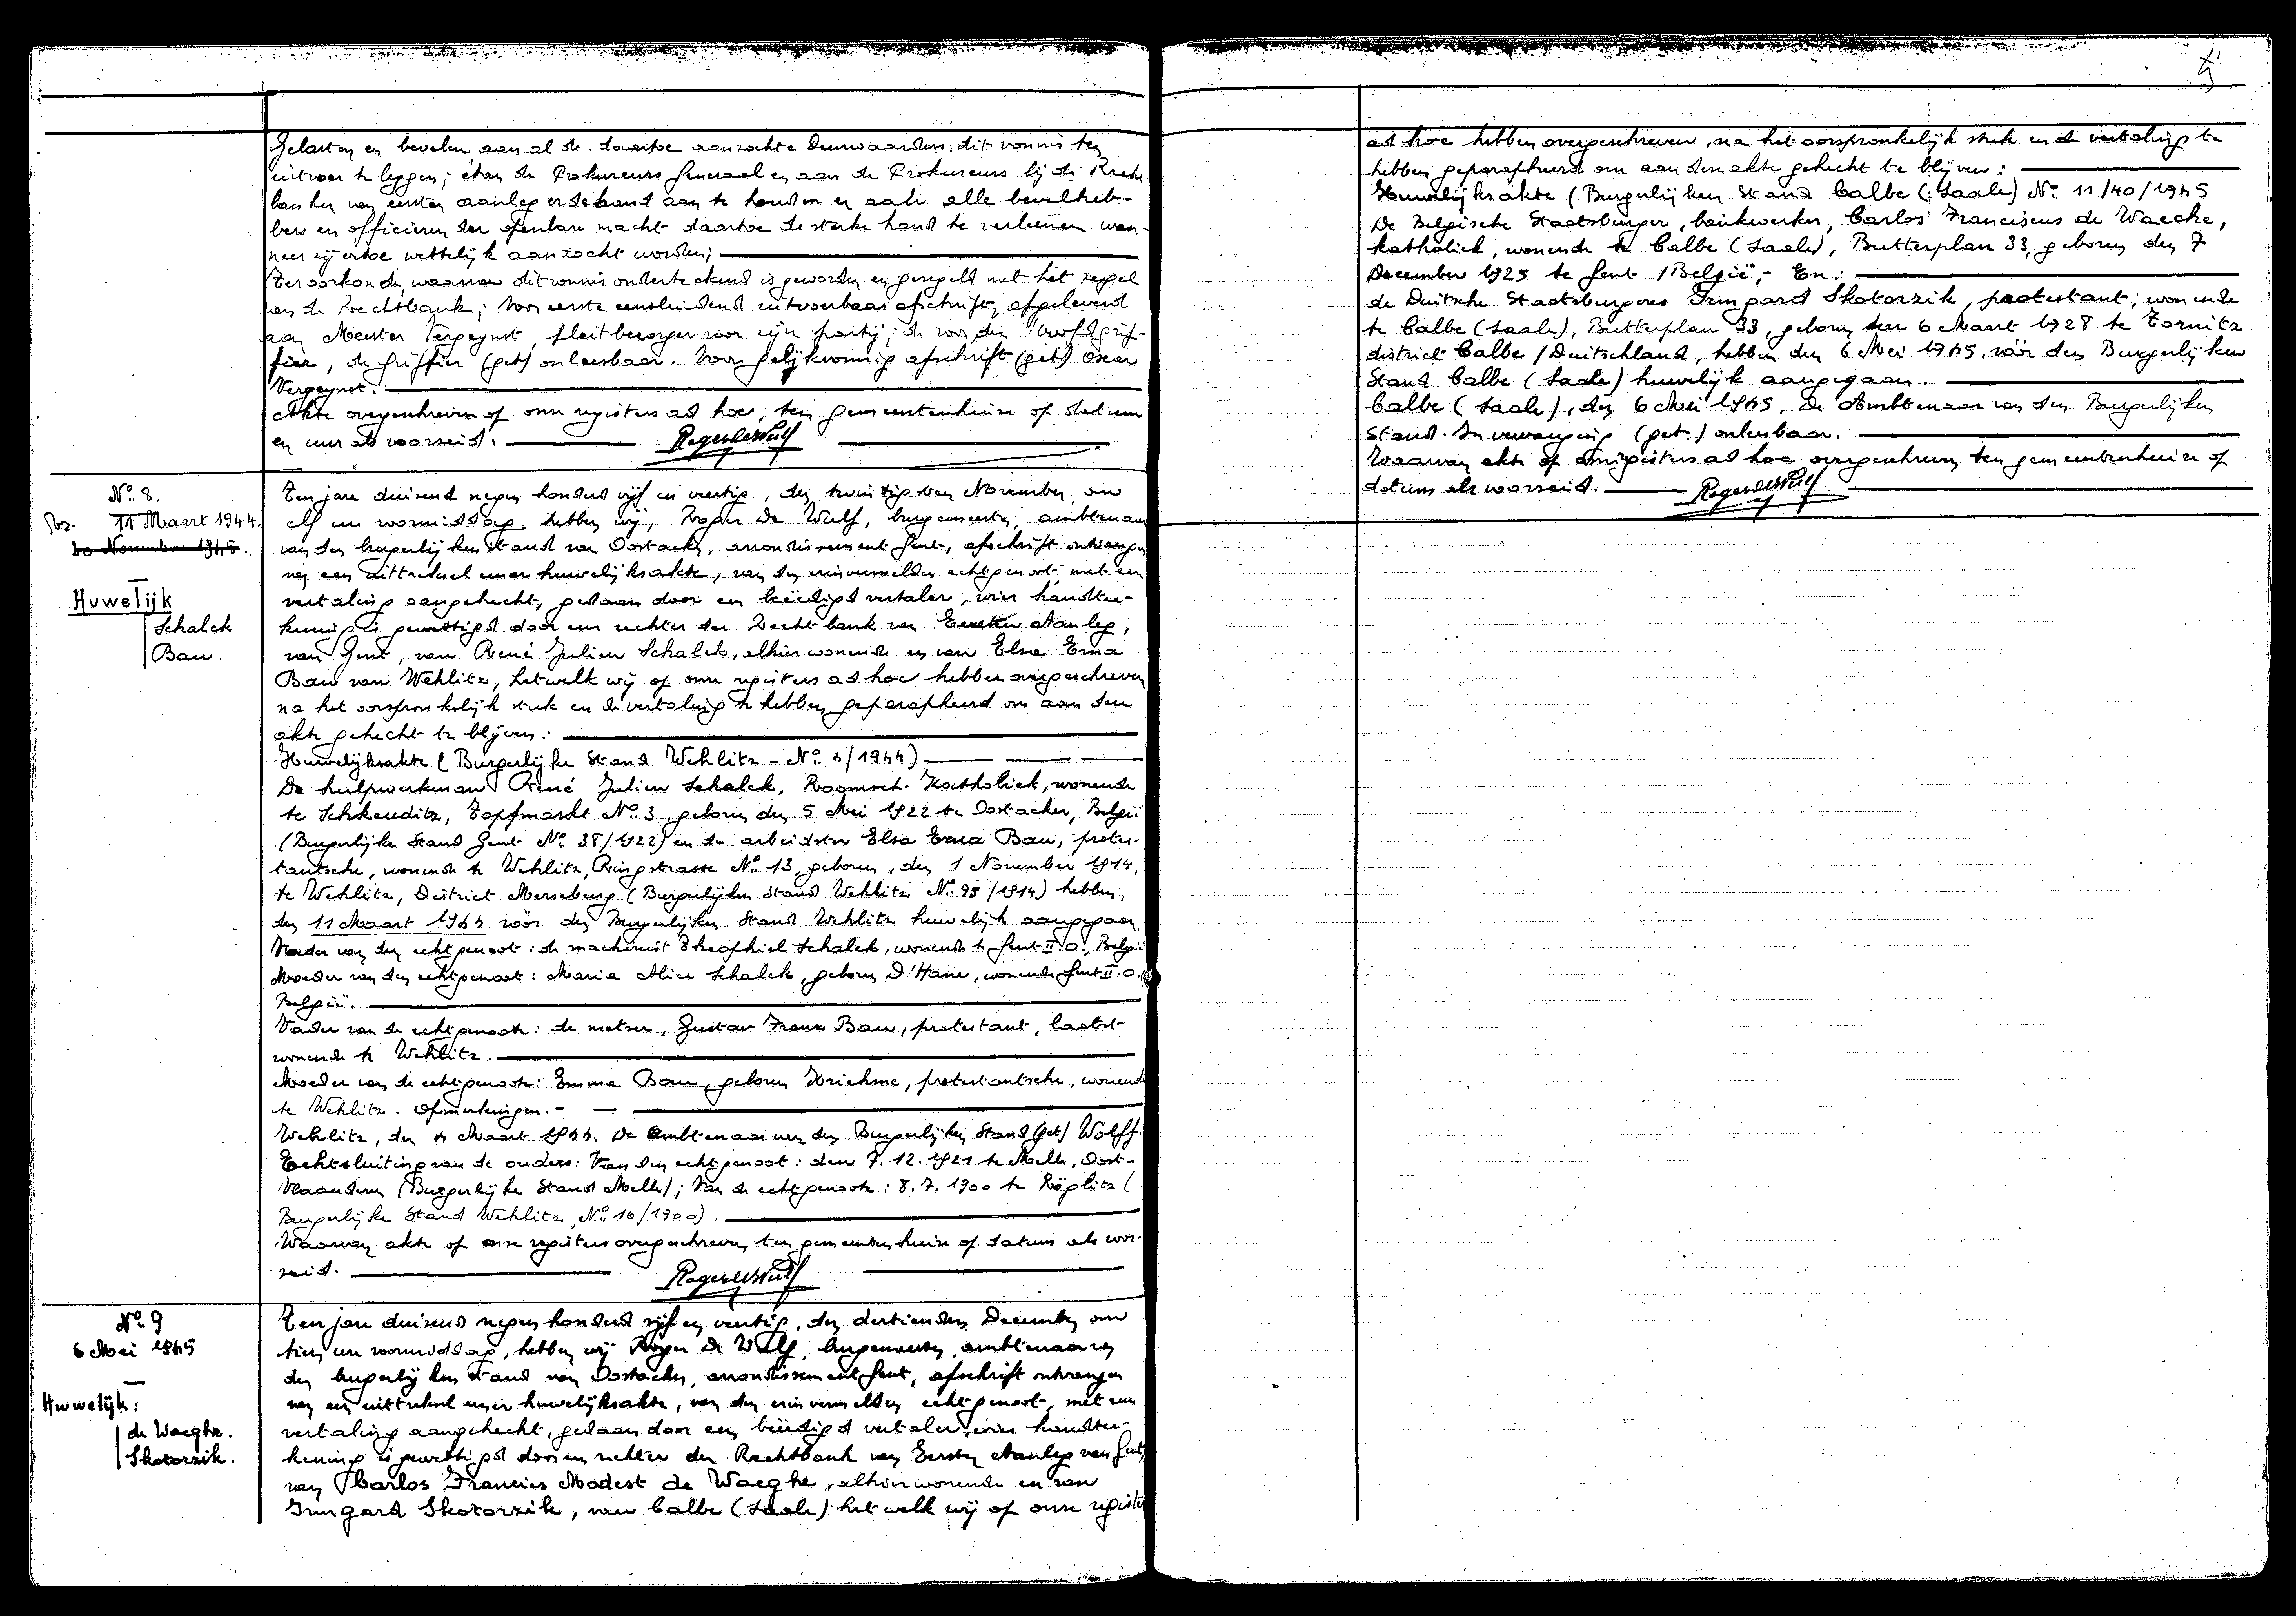 Gelasten en bevelen aan al de daartoe aanzochte deurwaarders dit vonnis ten
uitvoer te leggen; aan de Prokureurs Generaal en aan de Prokureurs bij de Recht-
banken van eersten aanleg er de hand aan te houden en aan alle bevelheb-
bers en officieren der openbare macht daartoe de sterke hand te verleenen wan-
neer zij ertoe wettelijk aanzocht worden;
Ter oorkonde, waarvan dit vonnis onderteekend is geworden en gezegeld met het zegel
van de Rechtbank; Voor eerste eensluidend uitvoerbaar afschrift, afgeleverd
aan Meester Vergeynst, pleitbezorger voor zijn partij; de voor den Hoofdgrif-
fier, de griffier (get) onleesbaar. Voor gelijkvormig afschrift (get) Oscar
Vergeynst.
Akte overgeschreven op onze registers ad hoc, ten gemeentenhuize op datum
en uur als voorzeid. Roger de Wulf
No. 8.
11 Maart 1944.
20 November 1945.
Huwelijk
Schalck
Bau.
Ten jare duizend negen honderd vijf en veertig, den twintigsten November, om
elf uur voormiddag, hebben wij, Roger De Wulf, burgemeester, ambtenaar
van den burgerlijken stand van Oostacker, arrondissement Gent, afschrift ontvangen
van een uittreksel eener huwelijksakte, van den erin vermelden echtgenoot, met een
vertaling aangehecht, gedaan door een beëedigd vertaler, wier handtee-
kening is gewettigd door een rechter der Rechtbank van Eersten Aanleg,
van Gent, van René Julien Schalck, alhier wonende en van Elsa Erna
Bau van Wehlitz, hetwelk wij op onze registers ad hoc hebben overgeschreven
na het oorspronkelijk stuk en de vertaling te hebben geparapheerd om aan den
akte gehecht te blijven:
Huwelijksakte (Burgerlijke Stand Wehlitz - No. 4/1944)
De hulpwerkman René Julien Schalck, Roomsch-Katholiek, wonende
te Schkeuditz, Topfmarkt No. 3, geboren den 5 Mei 1922 te Oostacker, België
(Burgerlijke Stand Gent No. 38/1922) en de arbeidster Elsa Erna Bau, protes-
tantsche, wonende te Wehlitz, Ringstrasse No. 13, geboren, den 1 November 1914,
te Wehlitz, District Merseburg (Burgerlijken Stand Wehlitz No. 95/1914) hebben,
den 11 Maart 1944 vóór den Burgerlijken Stand Wehlitz huwelijk aangegaan.
Vader van den echtgenoot: de machinist Theophiel Schalck, wonende te Gent II. O., België
Moeder van den echtgenoot: Maria Alice Schalck, geboren D'Hane, wonende Gent II. O.
België.
Vader van de echtgenoote: de metser, Gustav Franz Bau, protestant, laatst-
wonende te Wehlitz.
Moeder van de echtgenoote: Emma Bau, geboren Kriehme, protestantsche, wonende
te Wehlitz. Opmerkingen. - —
Wehlitz, den 4 Maart 1944. De Ambtenaar van den Burgerlijken Stand (get) Wolff.
Echtsluiting van de ouders: Van den echtgenoot: den 7. 12. 1921 te Melle, Oost-
Vlaanderen (Burgerlijke Stand Melle); Van de echtgenoote: 8. 7. 1900 te Röglitz (
Burgerlijke Stand Wehlitz, No. 16/1900).
Waarvan akte op onze registers overgeschreven ten gemeentenhuize op datum als voor-
zeid. Roger de Wulf
No. 9
6 Mei 1945
Huwelijk:
de Waeghe.
Skotorzik.
Ten jare duizend negen honderd vijf en veertig, den dertienden December om
tien uur voormiddag, hebben wij Roger De Wulf, burgemeester, ambtenaar van
den burgerlijken stand van Oostacker, arrondissement Gent, afschrift ontvangen
van een uittreksel eener huwelijksakte, van den erin vermelden echtgenoot, met een
vertaling aangehecht, gedaan door een beëedigd vertaler, wier handtee-
kening is gewettigd door een rechter der Rechtbank van Eersten Aanleg van Gent,
van Carlos Francies Modest de Waeghe, alhier wonende en van
Irmgard Skotorzik, van Calbe (Saale) hetwelk wij op onze registers
ad hoc hebben overgeschreven, na het oorspronkelijk stuk en de vertaling te
hebben geparapheerd om aan den akte gehecht te blijven:
Huwelijksakte (Burgerlijken Stand Calbe (Saale) No. 11/40/1945
De Belgische Staatsburger, bankwerker, Carlos Franciscus de Waeche,
katholiek, wonende te Calbe (Saale), Butterplan 33, geboren den 7
December 1925 te Gent / België, - En:
de Duitsche Staatsburgeres Irmgard Skotorzik, protestant, wonende
te Calbe (Saale), Butterplan 33, geboren den 6 Maart 1928 te Tornitz
district Calbe / Duitschland, hebben den 6 Mei 1945, vóór den Burgerlijken
Stand Calbe (Saale) huwelijk aangegaan.
Calbe (Saale), den 6 Mei 1945. De Ambtenaar van den Burgerlijken
Stand. In vervanging (get.) onleesbaar.
Waarvan akte op onze registers ad hoc overgeschreven ten gemeentenhuize op
datum als voorzeid. Roger de Wulf